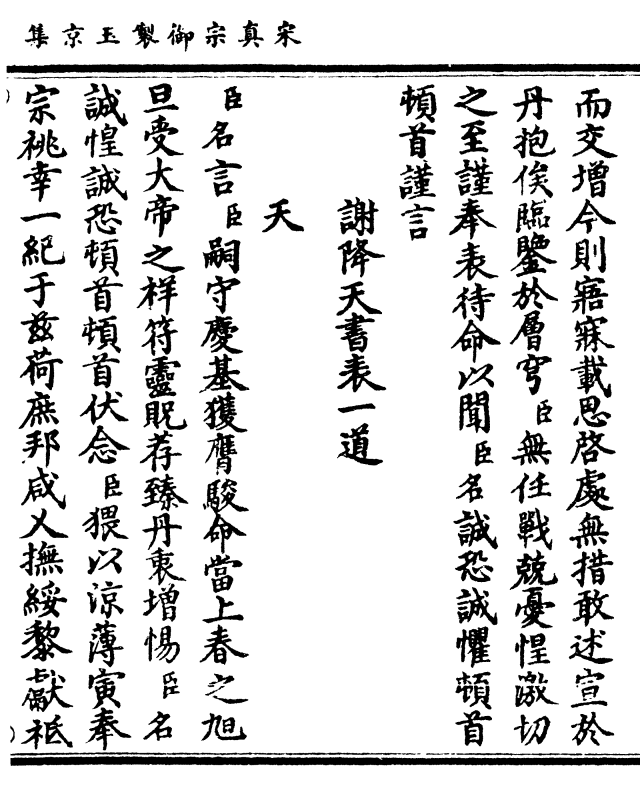 宋真宗御製玉京集
而交增今則寤寐載思啓處無措敢述宣於
丹抱俟臨鑒於層穹臣無任戰兢憂惶激切
之至謹奉表待命以聞臣名誠恐誠懼頓首
頓首謹言
謝降天書表一道
天
臣名言臣嗣守慶基獲膺駿命當上春之旭
旦受大帝之祥符靈貺荐臻丹衷增惕臣名
誠惶誠恐頓首頓首伏念臣猥以涼薄寅奉
宗祧幸一紀于茲荷庶邦咸乂撫綏黎獻祗